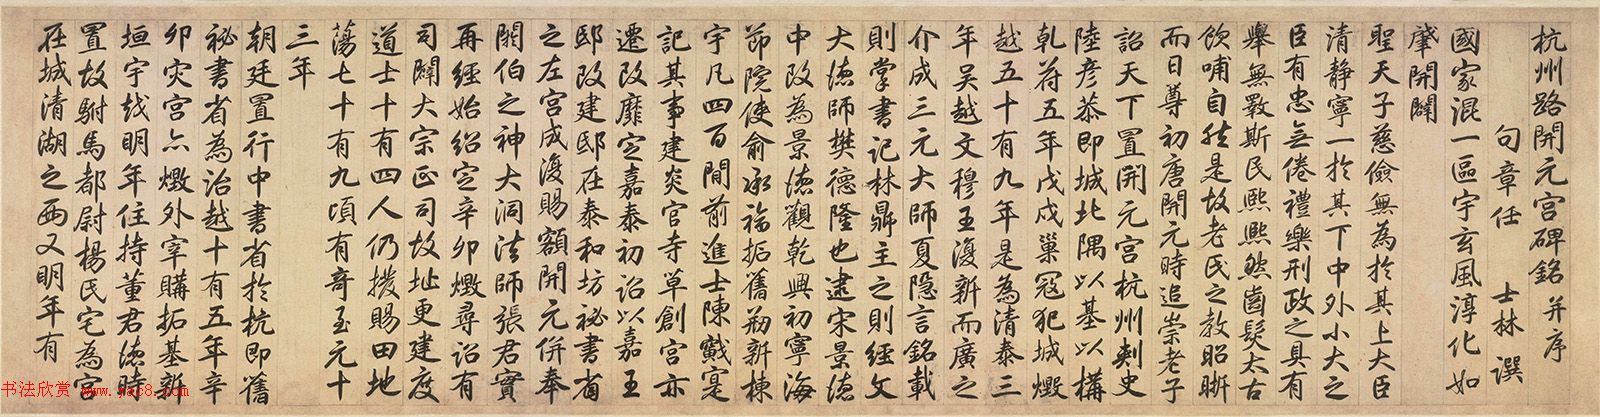 杭州路開元宮碑銘并序
句章任 士林 譔
國家混一區宇玄風淳化如
肇開闢
聖天子慈儉無為於其上大臣
清静寧一於其下中外小大之
臣有忠無倦禮樂刑政之具有
舉無斁斯民熙熙然齒髮太古
飲哺自然是故老氏之教昭晰
而日尊初唐開元時追崇老子
詔天下置開元宮杭州刺史
陸彦恭即城北隅以基以構
乹符五年戊戌巢寇犯城燬
越五十有九年是為清泰三
年吴越文穆王復新而廣之
介成三元大師夏隐言銘載
則掌書記林鼎主之則經文
大德師樊德隆也逮宋景德
中改為景德觀乾興初寧海
節院使俞承福拓舊剏新棟
宇凡四百間前進士陳戩寔
記其事建炎官寺草創宮亦
遷改靡定嘉泰初詔以嘉王
邸改建邸在泰和坊秘書省
之左宮成復賜額開元併奉
閼伯之神大洞法師張君實
再經始紹定辛卯燬尋詔有
司闢大宗正司故址更建度
道士十有四人仍撥賜田地
蕩七十有九頃有奇至元十
三年
朝廷置行中書省於杭即舊
祕書省為治越十有五年辛
卯灾宮亦燬外宰購拓基新
垣宇越明年住持董君德時
置故駙馬都尉楊氏宅為宮
在城清湖之西又明年有
书法欣赏 www.yac8.com